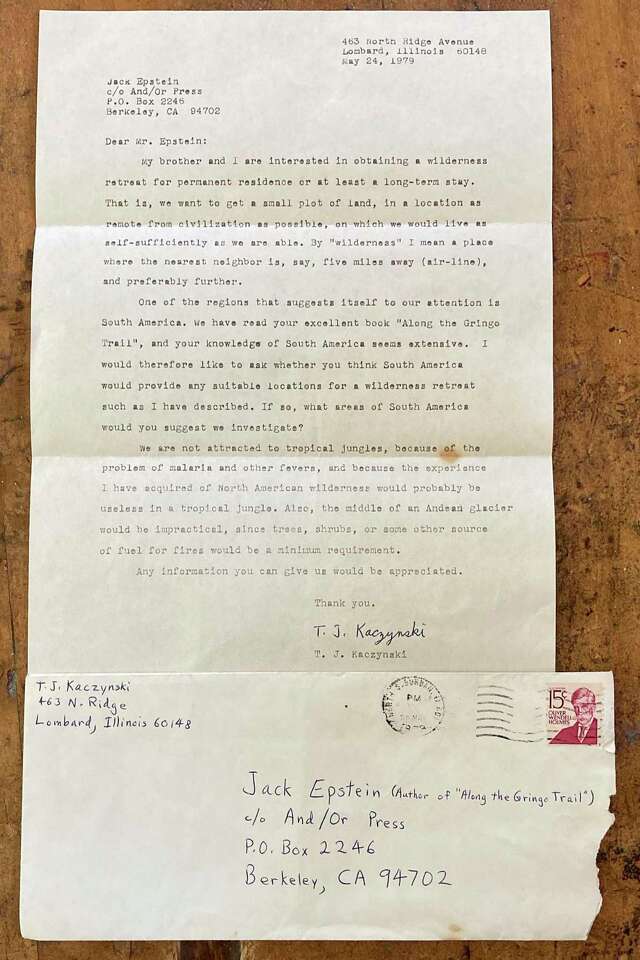 463 North Ridge Avenue
Lombard, Illinois 60148
May 24, 1979
Jack Epstein
c/o And/Or Press
P.O. Box 2246
Berkeley, CA 94702
Dear Mr. Epstein:
My brother and I are interested in obtaining a wilderness
retreat for permanent residence or at least a long-term stay.
That is, we want to get a small plot of land, in a location as
remote from civilization as possible, on which we would live as
self-sufficiently as we are able. By "wilderness" I mean a place
where the nearest neighbor is, say, five miles away (air-line),
and preferably further.
One of the regions that suggests itself to our attention is
South America. We have read your excellent book "Along the Gringo
Trail", and your knowledge of South America seems extensive. I
would therefore like to ask whether you think South America
would provide any suitable locations for a wilderness retreat
such as I have described. If so, what areas of South America
would you suggest we investigate?
We are not attracted to tropical jungles, because of the
problem of malaria and other fevers, and because the experience
I have acquired of North American wilderness would probably be
useless in a tropical jungle. Also, the middle of an Andean glacier
would be impractical, since trees, shrubs, or some other source
of fuel for fires would be a minimum requirement.
Any information you can give us would be appreciated.
Thank you.
T. J. Kaczynski
T. J. Kaczynski
T. J. Kaczynski
463 N. Ridge
Lombard, Illinois 60148
PM
15c
OLIVER
WENDELL
HOLMES
Jack Epstein (Author of "Along the Gringo Trail")
c/o And/Or Press
P.O. Box 2246
Berkeley, CA 94702